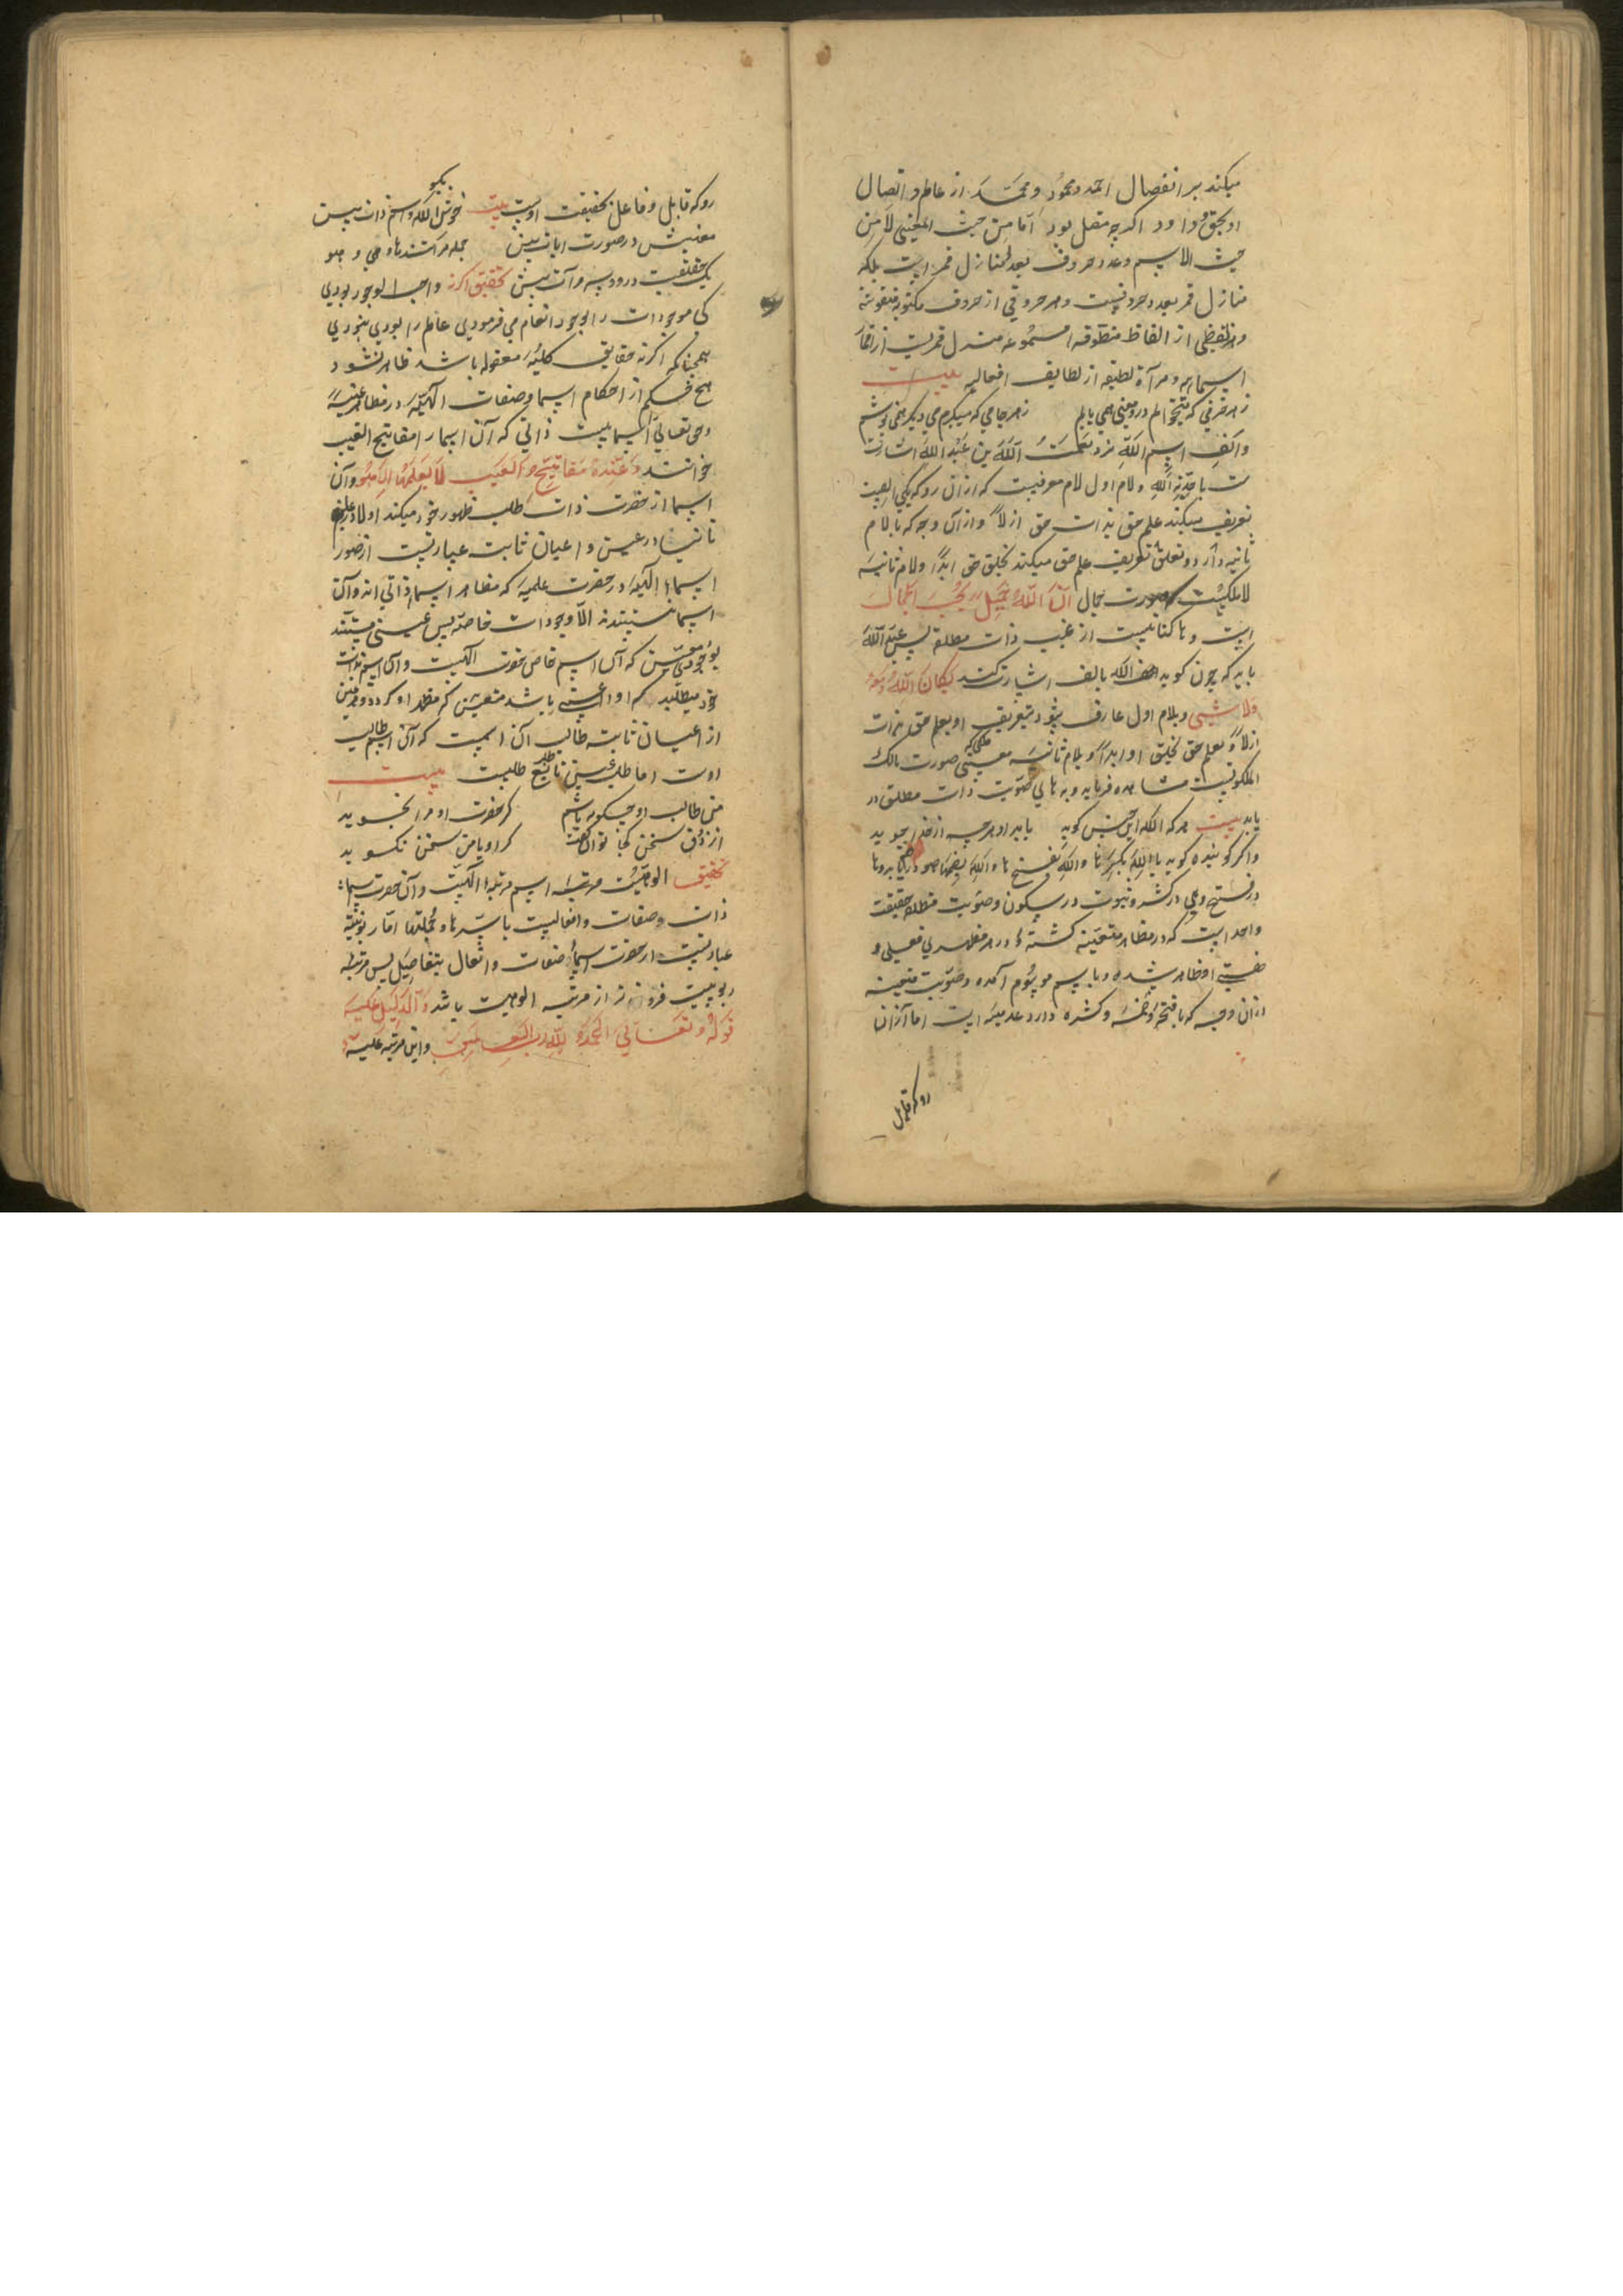 میکند بر انفصال احمد و محمود و محمد از عالم و اتصال
او بحق و داود اگرچه متصل بود اما من حیث المعنی لا من
حیث الاسم وعدد حروف بعدد منازل قمر است بلکه
منازل قمر بعدد حروفست و هر حرفی از حروف مکتوبه منقوشه
و هر لفظی از الفاظ منطوقه مسموعه منزل قمریست از اقمار
اسمائیه و مرآة لطیفه از لطایف افعالیه بیت
ز هر حرفی که میخوانم درو معنی همی یابم ز هر جامی که میگیرم می دیگر همی نوشم
و الف اسم الله نزد نعمت الله بن عبد الله اشارت
ست باحدیة الله و لام اول لام معرفت که از ان رو که یکی الفست
تعریف میکند علم حق بذات حق ازلاً و از آن وجه که با لام
ثانیه دارد و تعلق تعریف علم حق میکند بخلق حق ابداً و لام ثانیه
لام ملکیست صورت جمال ان الله جمیل یحب الجمال
است و ها کنایتست از غیب ذات مطلق پس عبد الله
باید که چون گوید الله بالف اشارت کند بکان الله و معه
ولا شیئ و بلام اول عارف شود بتعریف او بعلم حق بذات
ازلاً و بعلم حق بخلق او ابداً و بلام ثانیه معنی صورت مالک
الملکوتیت مشاهده فرماید و به های هویت ذات مطلق در
یابد بیت هر که الله این چنین گوید یابد او هرچه از خدا جوید
و اگر گوینده گوید یا الله بکسر ها والله بفتح ها و الله بضم ها
در فتح و هی در کسر و هوت در سکون و هویت مطلقه حقیقت
واحد است که در مظاهر متعینه گشته و در هر مظهری فعلی و
صفتی او ظاهر شده و باسم موسوم آمده و هویت متعینه
از ان وجه که با فتحه و ضمه و کسره دارد عدمیه است اما از ان
رو که قابل
رو که قابل و فاعل بحقیقت اوست بیت خوش بگو الله و اسم ذات ببین
معنیش در صورت ایات ببین جمله مر آتند ها و هی و هو
یک حقیقت در دو سه مرآت ببین تحقیق اگر نه واجب الوجود بودی
کی موجودات را بوجود انعام می فرمودی عالم را بودی نبودی
همچنانکه اگر نه حقایق کلیه معقوله باشد ظاهر نشود
هیچ حکم از احکام اسما و صفات الهیه در مظاهر عینیه
و حق تعالی را اسماییست ذاتی که آن اسما را مفاتیح الغیب
خوانند وعنده مفاتیح الغیب لا یعلمها الا هو و آن
اسما از حضرت ذات طلب ظهور خود میکند اولا در علم
ثانیا در عین و اعیان ثابته عبارتست از صور
اسماء الهیه در حضرت علمیه که مظاهر اسماء ذاتی اند و آن
اسما نیستند الا وجودات خاصه پس عینی نیستند
بوجود معین که آن اسم خاص حضرت الهیست و آن اسم بذات
خود میطلبد که او را عینی باشد متعین که مظهر او گردد و هر عینی
از اعیان ثابته طالب آن اسمیست که آن اسم طالب
اوست اما طلب عینی تابع طلبست بیت
من طالب او چگونه باشم گر حضرت او مرا نجوید
از ذوق سخن کجا توان گفت گر او با من سخن نگوید
تحقیق الوهیت مرتبه اسم مرتبه الهیت و آن حضرت اسماء
ذات و صفات و افعالست باسرها و بجملتها اما ربوبیت
عبارتست از حضرت اسماء صفات و افعال بتفاصیل پس مرتبه
ربوبیت فروتر از مرتبه الوهیت باشد والدلیل علیه
قوله و تعالی الحمد لله رب العالمین و این مرتبه علیه